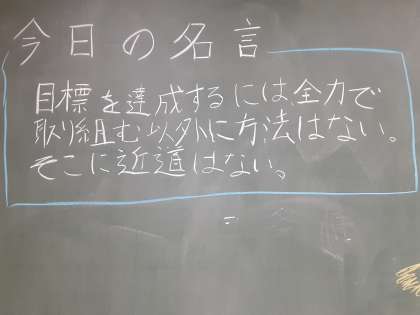 今日の名言
目標を達成するには全力で
取り組む以外に方法はない。
そこに近道はない。